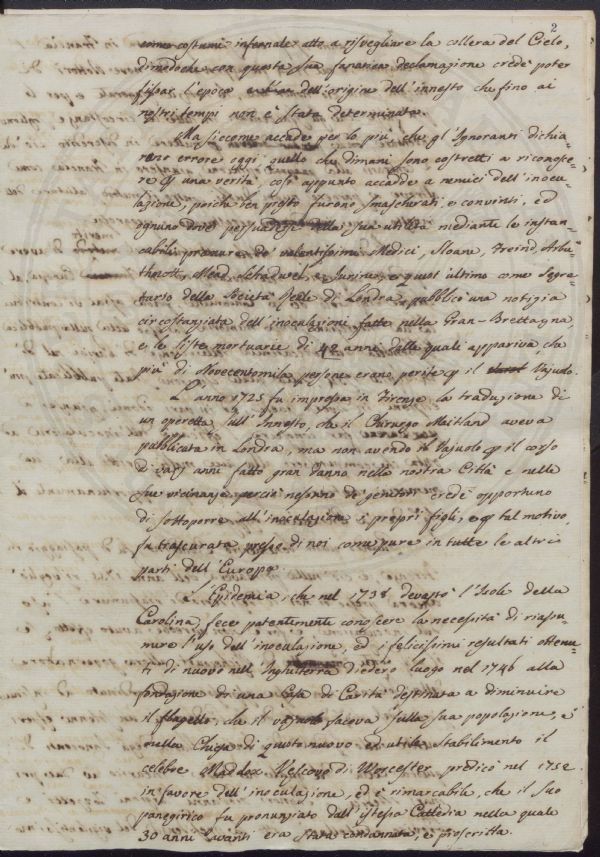 2
come costumi infernale atto a risvegliare la collera del Cielo,
dimodochè con questa sua fanatica declamazione credè poter
fissar l'epoca dell'origine dell'innesto che fino ai
nostri tempi non è stata determinata.
Ma siccome accade per lo più, che gl'Ignoranti dichia-
rano errore oggi quello che dimani sono costretti a riconosce-
re una verità, così appunto accadde a nemici dell'inocu-
lazione, poichè ben presto furono smascherati, e convinti, ed
ognuno dovè persuadersi della sua utilità mediante le instan-
cabili premure de' valentissimi Medici, Sloane, Freind, Arbu-
thnott, Mead, Schadwel, e Jurine, e quest'ultimo come Segre-
tario della Società Reale di Londra, pubblicò una notizia
circostanziata dell'inoculazioni fatte nella Gran-Brettagna,
e le liste mortuarie di 42 anni dalle quali appariva, che
più di Novecentomila persone erano perite il Vajuolo.
L'anno 1725 fu impressa in Firenze la traduzione di
un operetta sull'Innesto, che il Chirurgo Maitland aveva
pubblicata in Londra, ma non avendo il Vajuolo il corso
di varj anni fatto gran danno nella nostra Città e nelle
sue vicinanze perciò nessuno de genitori credè opportuno
di sottoporre all'inoculazione i proprj figli, e tal motivo,
fu trascurata presso di noi come pure in tutte le altre
parti dell'Europa.
L'Epidemia, che nel 1738 devastò l'Isole della
Carolina, fece patentemente conoscere la necessità di riassu-
mere l'uso dell'inoculazione, ed i felicissimi resultati ottenu-
ti di nuovo nell'Inghilterra diedero luogo nel 1746 alla
fondazione di una Casa di Carità destinata a diminuire
il flagello, che il vajuolo faceva sulla sua popolazione, e
nella Chiesa di questo nuovo ed utile stabilimento il
celebre Maddox Vescovo di Worcester predicò nel 1752
in favore dell'inoculazione, ed è rimarcabile, che il suo
panegirico fu pronunziato dall'istessa Cattedra nella quale
30 anni avanti era stata condannata, e proscritta.